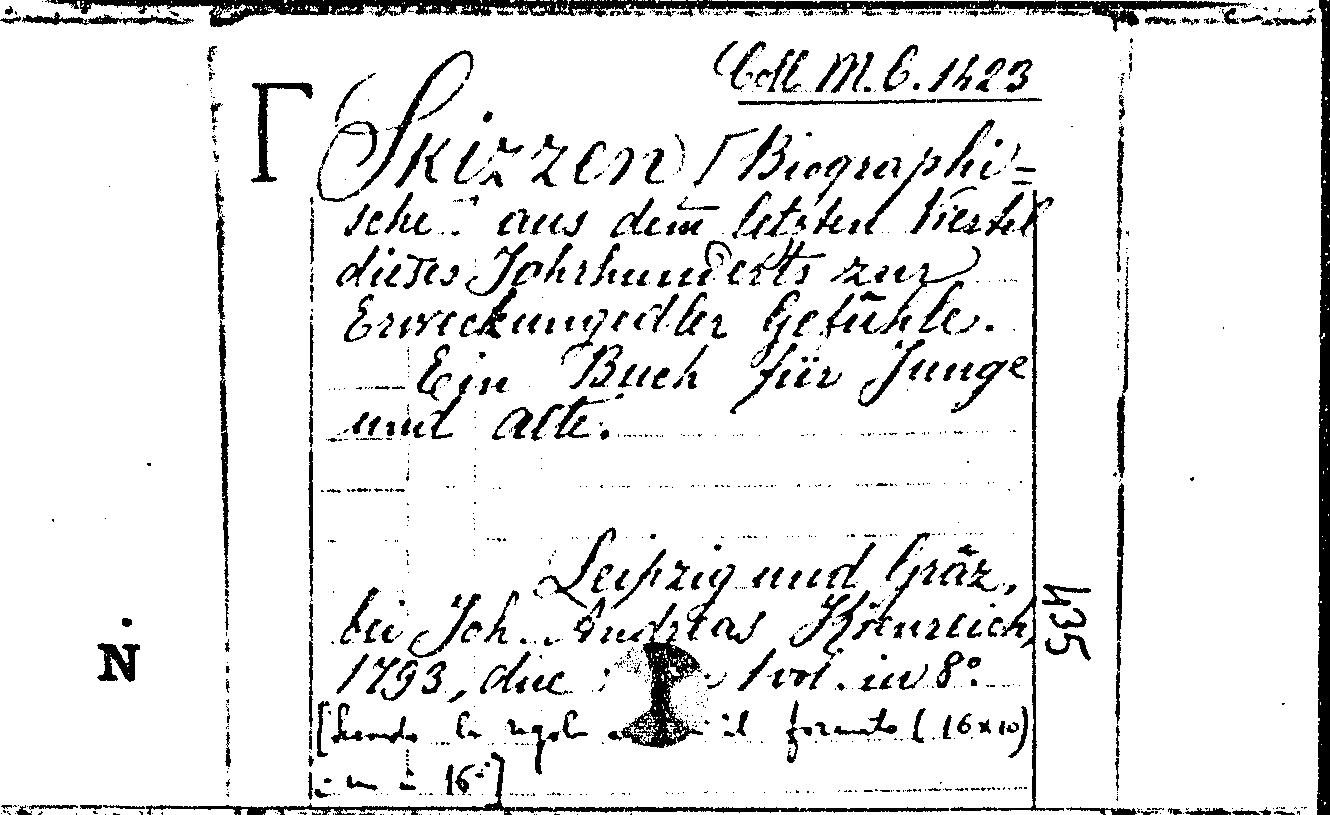 Coll. M. C. 1423
Γ Skizzen) [Biographi=
sche] aus dem letzten Viertel
dieses Jahrhunderts zur
Erweckungedler Gefühle.
Ein Buch für Junge
und alte.
Leipzig und Gräz,
bei Joh. Andreas Kienreich,
1793, due 1 vol. in 8º.
435
N
[Secondo la regola il formato (16x10)
16º]